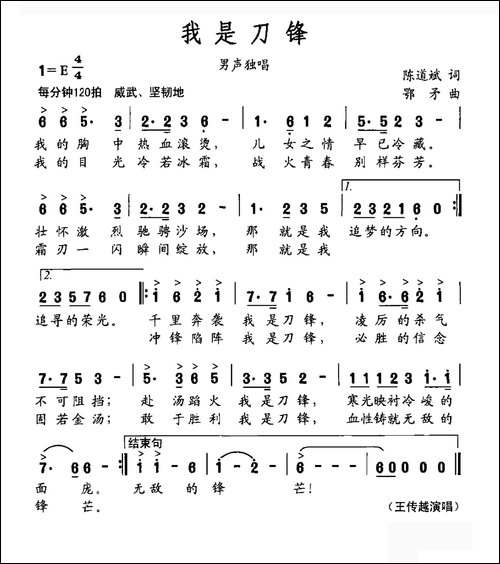 我是刀锋
男声独唱
1=E 4/4
陈道斌 词
每分钟120拍 威武、坚韧地
鄂矛 曲
6 6 5· 3 | 2·2 3 6 - | 1· 6 1 2 | 5·5 2 3 - |
我的胸 中热血滚烫, 儿女之情 早已冷藏。
我的目 光冷若冰霜, 战火青春 别样芬芳。
6 6 5· 3 | 2·2 3 2 - | 1· 2 3 5 | 1. 2 3 2 1 6 0 :|
壮怀激 烈驰骋沙场, 那就是我 追梦的方向。
霜刃一 闪瞬间绽放, 那就是我
2. 2 3 5 7 6 0 |: 1 6 2 1 | 7·7 1 6 - | 1 6·6 2 1 |
追寻的荣光。 千里奔袭 我是刀锋, 凌厉的杀气
冲锋陷阵 我是刀锋, 必胜的信念
7·7 5 3 - | 5· 3 6 6 | 2·2 3 5 - | 1 1 1 1 2 3 1·1 |
不可阻挡; 赴汤蹈火 我是刀锋, 寒光映衬冷峻的
固若金汤; 敢于胜利 我是刀锋, 血性铸就无敌的
结束句
7· 6 6 - :| 1 1 - 6 | 1 - 2 - | 6 - - - | 6 0 0 0 0 ‖
面庞。 无敌的 锋 芒!
锋芒。
(王传越演唱)